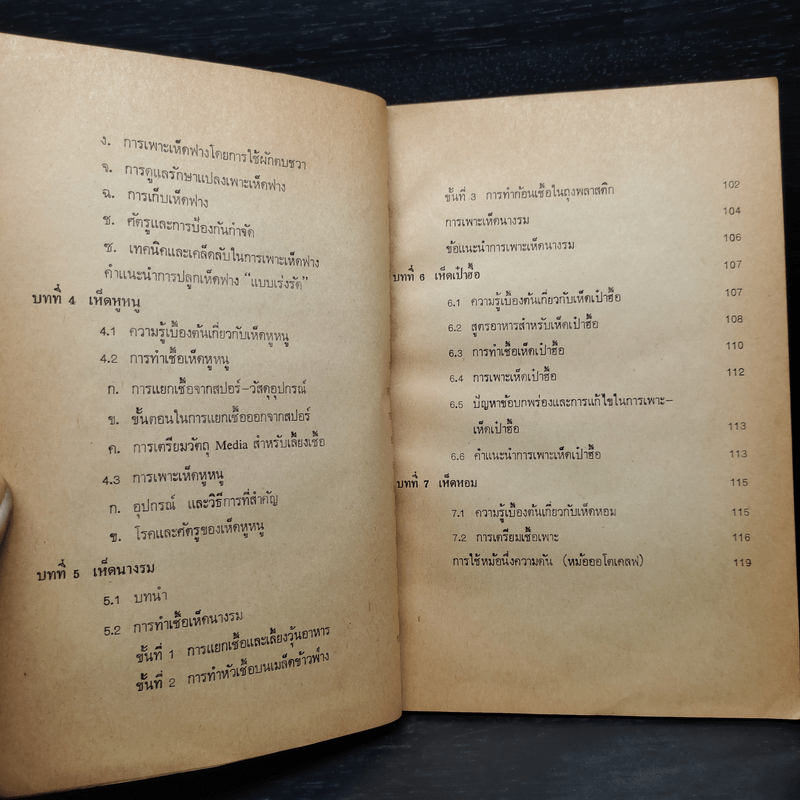 ง. การเพาะเห็ดฟางโดยการใช้ผักตบชวา
จ. การดูแลรักษาแปลงเพาะเห็ดฟาง
ฉ. การเก็บเห็ดฟาง
ช. ศัตรูและการป้องกันกำจัด
ซ. เทคนิคและเคล็ดลับในการเพาะเห็ดฟาง
คำแนะนำการปลูกเห็ดฟาง “แบบเร่งรัด”
บทที่ 4 เห็ดหูหนู
4.1 ความรู้เบื้องต้นเกี่ยวกับเห็ดหูหนู
4.2 การทำเชื้อเห็ดหูหนู
ก. การแยกเชื้อจากสปอร์-วัสดุอุปกรณ์
ข. ขั้นตอนในการแยกเชื้อออกจากสปอร์
ค. การเตรียมวัตถุ Media สำหรับเลี้ยงเชื้อ
4.3 การเพาะเห็ดหูหนู
ก. อุปกรณ์ และวิธีการที่สำคัญ
ข. โรคและศัตรูของเห็ดหูหนู
บทที่ 5 เห็ดนางรม
5.1 บทนำ
5.2 การทำเชื้อเห็ดนางรม
ขั้นที่ 1 การแยกเชื้อและเลี้ยงวุ้นอาหาร
ขั้นที่ 2 การทำหัวเชื้อบนเมล็ดข้าวฟ่าง
ขั้นที่ 3 การทำก้อนเชื้อในถุงพลาสติก 102
การเพาะเห็ดนางรม 104
ข้อแนะนำการเพาะเห็ดนางรม 106
บทที่ 6 เห็ดเป๋าฮื้อ 107
6.1 ความรู้เบื้องต้นเกี่ยวกับเห็ดเป๋าฮื้อ 107
6.2 สูตรอาหารสำหรับเห็ดเป๋าฮื้อ 108
6.3 การทำเชื้อเห็ดเป๋าฮื้อ 110
6.4 การเพาะเห็ดเป๋าฮื้อ 112
6.5 ปัญหาข้อบกพร่องและการแก้ไขในการเพาะ-
เห็ดเป๋าฮื้อ 113
6.6 คำแนะนำการเพาะเห็ดเป๋าฮื้อ 113
บทที่ 7 เห็ดหอม 115
7.1 ความรู้เบื้องต้นเกี่ยวกับเห็ดหอม 115
7.2 การเตรียมเชื้อเพาะ 116
การใช้หม้อนึ่งความดัน (หม้อออโตเคลฟ) 119